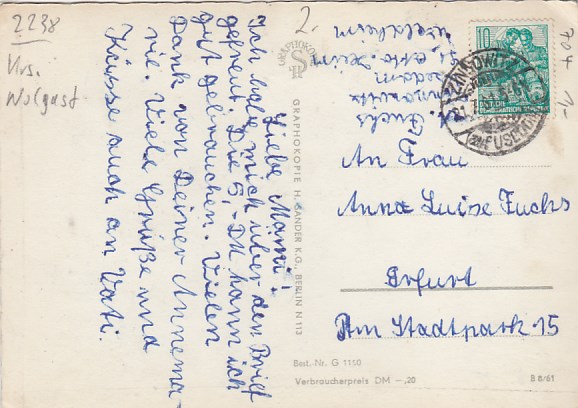 2238
Krs.
Wolgast
2.
704
1-
Liebe Mami!
Ich habe mich über den Brief
gefreut. Die 5,- DM kann ich
gut gebrauchen. Vielen
Dank von Deiner Annema-
rie. Viele Grüße und
Küsse auch an Vati.
GRAPHOKOPIE H. SANDER K.G., BERLIN N 113
GRAPHOKOPIE
H S
Fuchs
10
ZINNOWITZ
An Frau
Anna Luise Fuchs
Erfurt
Am Stadtpark 15
Best.-Nr. G 1150
Verbraucherpreis DM -,20
B 8/61